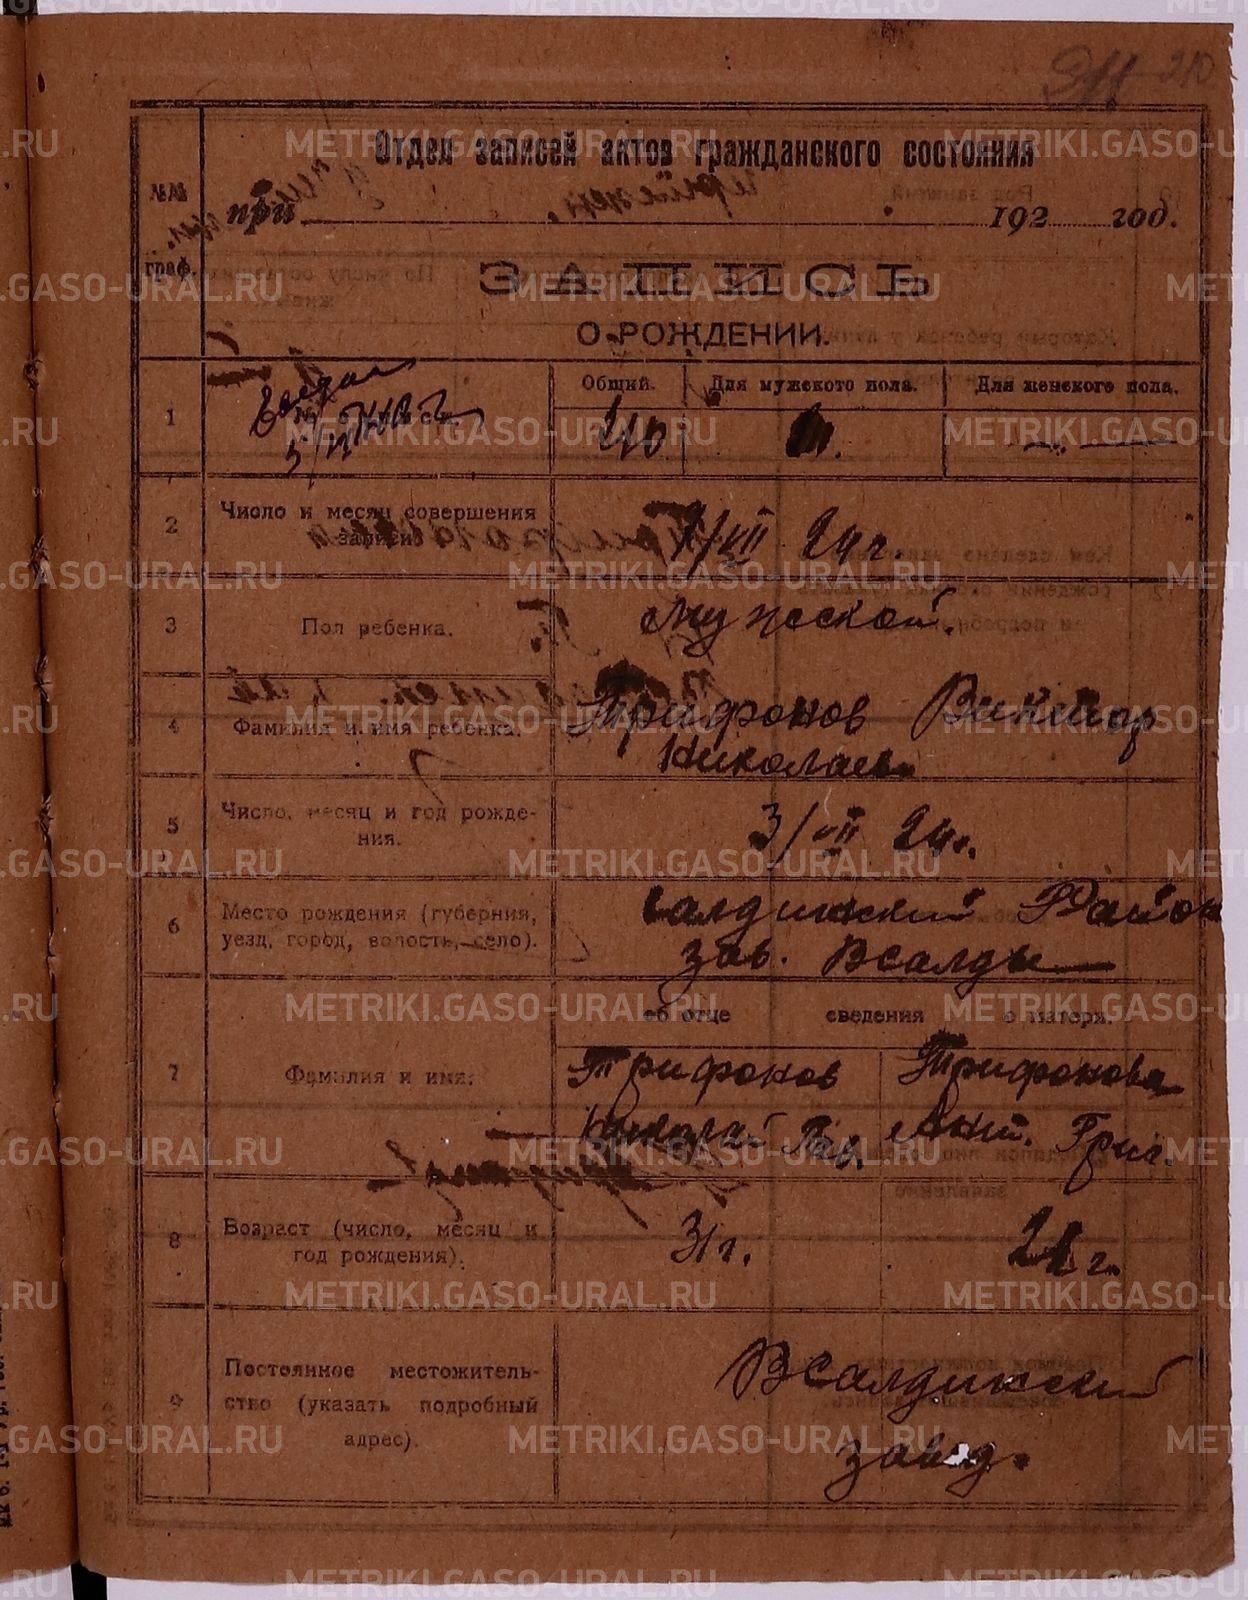 210
Отдел записей актов гражданского состояния
№№ граф.
при 192 год.
ЗАПИСЬ
О РОЖДЕНИИ.
1
Общий. Для мужского пола. Для женского пола.
210
2 Число и месяц совершения записи.
7/VII 24 г.
3 Пол ребенка.
Мужской.
4 Фамилия и имя ребенка.
Трифонов Виктор
Николаев
5 Число, месяц и год рождения.
3/VII 24 г.
6 Место рождения (губерния, уезд, город, волость, село).
Салдинский Район
зав. ВСалды
об отце сведения о матери.
7 Фамилия и имя.
Трифонов Трифонова
Николай Пав. Ант. Григ.
8 Возраст (число, месяц и год рождения).
31 г.
9 Постоянное местожительство (указать подробный адрес).
ВСалдинский
завод.
METRIKI.GASO-URAL.RU